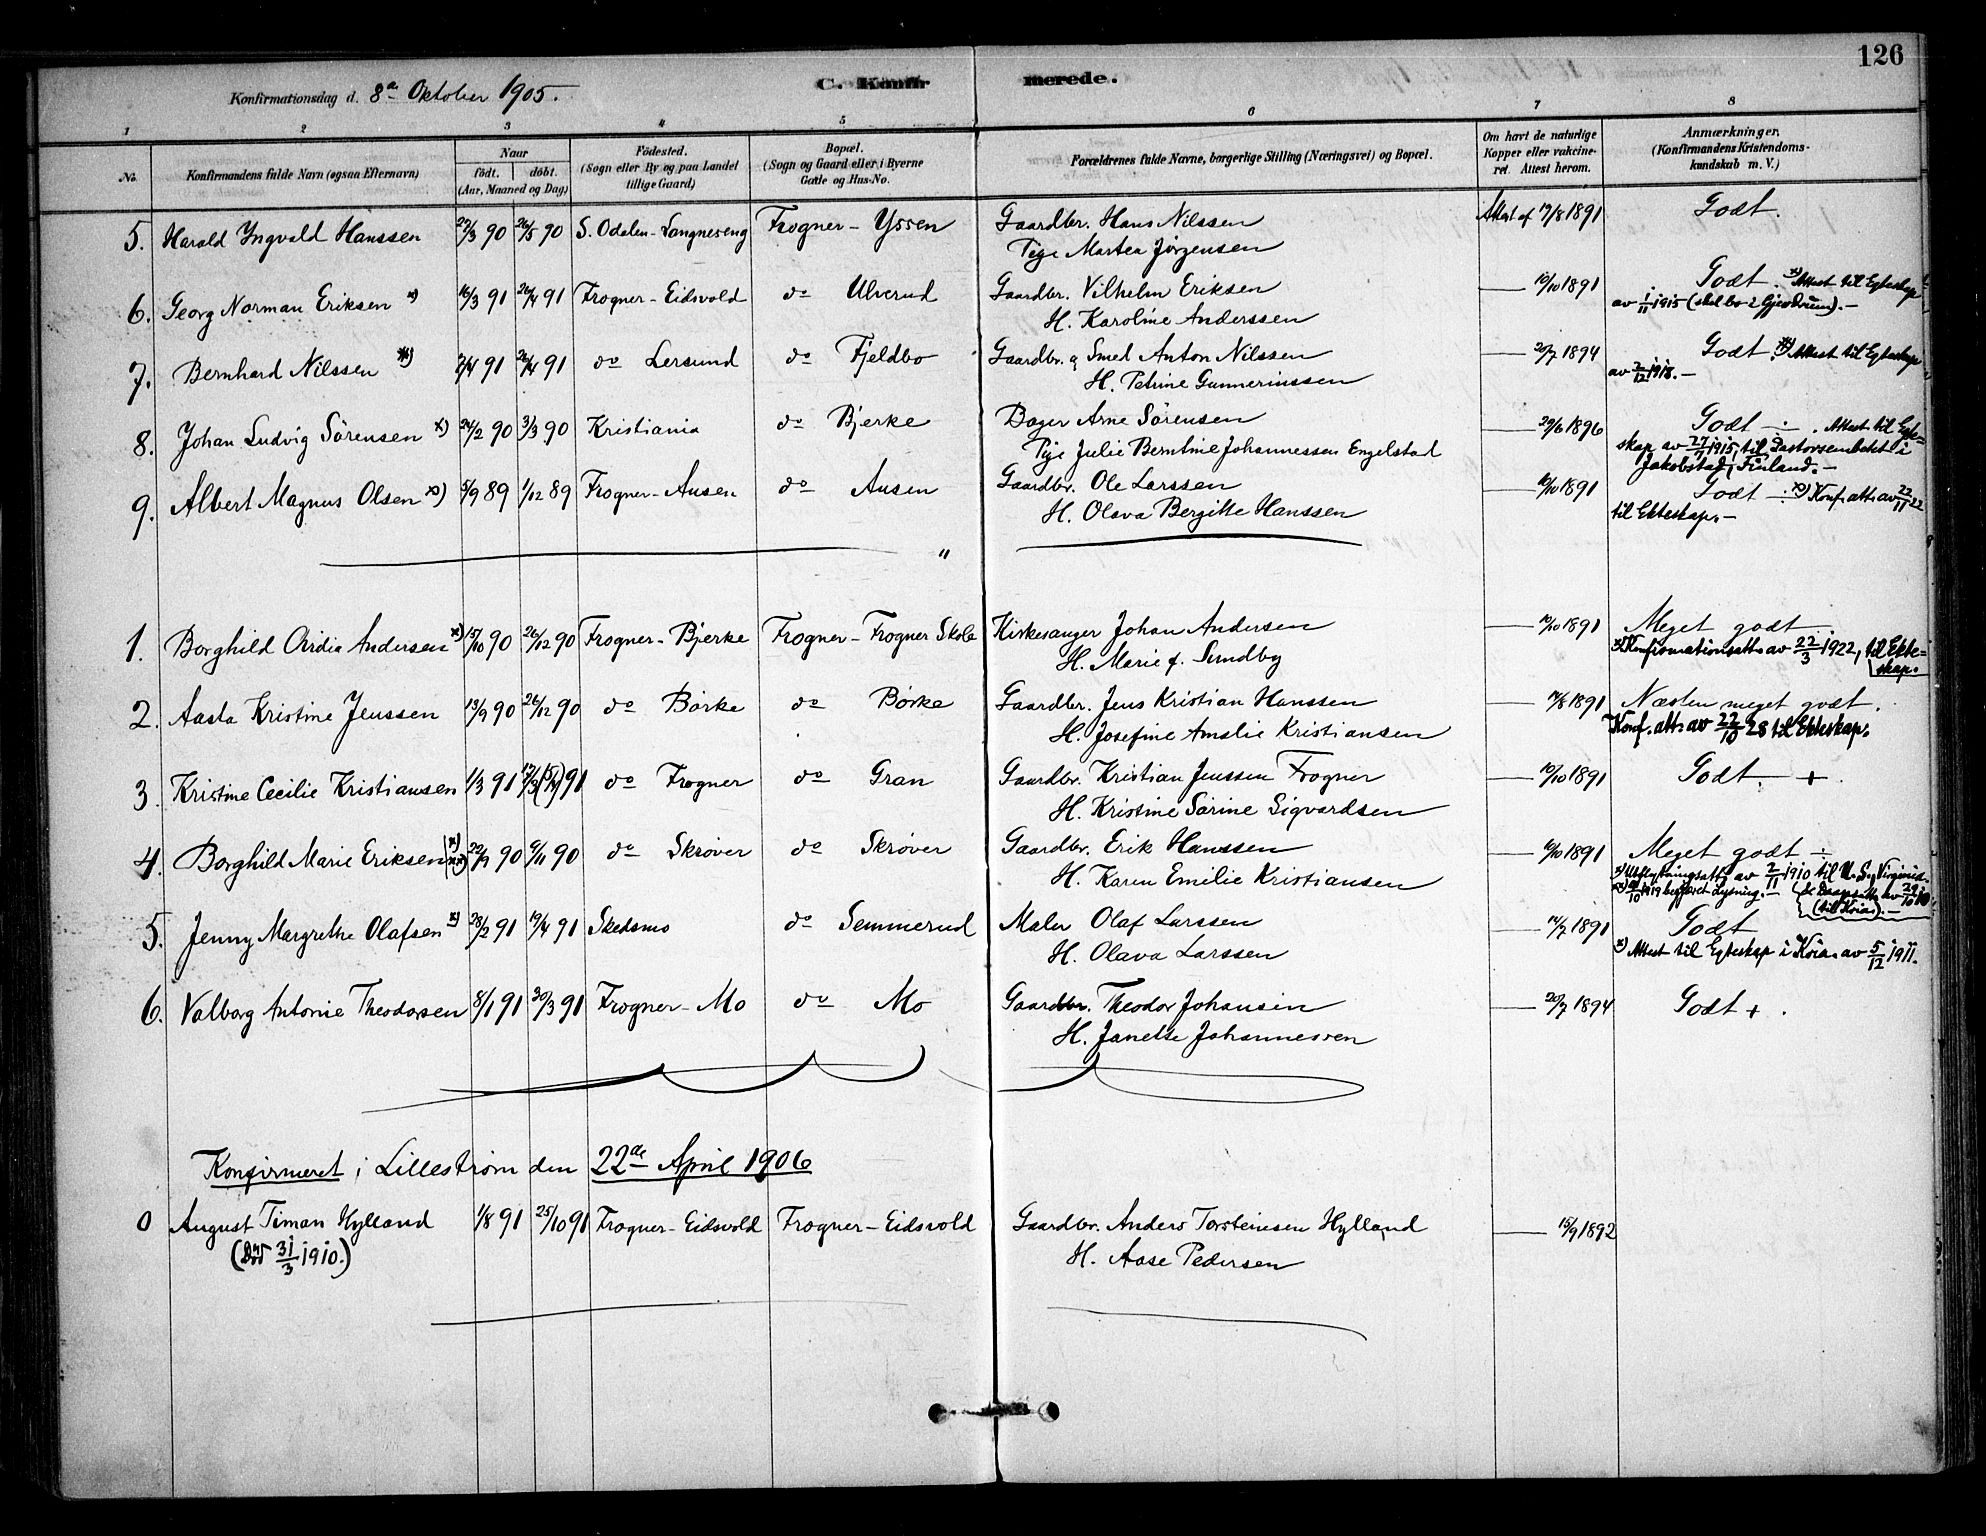 126
Konfirmationsdag d. 8de Oktober 1905.
C. Konfirmerede.
1 2 3 4 5 6 7 8
No. Konfirmandens fulde Navn (ogsaa Efternavn)
Naar født. døbt. (Aar, Maaned og Dag)
Fødested. (Sogn eller By og paa Landet tillige Gaard)
Bopæl. (Sogn og Gaard eller i Byerne Gade og Hus-No.
Forældrenes fulde Navne, borgerlige Stilling (Næringsvei) og Bopæl.
Om havt de naturlige Kopper eller vakcineret. Attest herom.
Anmærkninger. (Konfirmandens Kristendomskundskab m. V.)
5. Harald Yngvald Hanssen 22/3 90 26/5 90 S. Odalen - Langneseng Frogner - Yssen Gaardbr. Hans Nilssen Attest af 17/8 1891 Godt.
Pige Martea Jørgensen
6. Georg Norman Eriksen x) 16/3 91 26/4 91 Frogner - Eidsvold do Ulverud Gaardbr. Vilhelm Eriksen — 10/10 1891 Godt. x) Attest til Egteskap
H. Karoline Anderssen av 1/11 1915 (skal bo i Gjerdrum). -
7. Bernhard Nilssen x) 2/4 91 26/4 91 do Lersund do Fjeldbo Gaardbr. og Smed Anton Nilssen — 20/7 1894 Godt. x) Attest til Egteskap
H. Petrine Gunneriussen av 2/12 1918. -
8. Johan Ludvig Sørensen x) 24/2 90 3/3 90 Kristiania do Bjerke Bager Arne Sørensen — 29/6 1896 Godt -. Attest til Egte=
Pige Julie Berntine Johannessen Engelstad skap av 27/7 1915, til Pastorsembetet i
Jakobstad, Finland. -
9. Albert Magnus Olsen x) 5/9 89 1/12 89 Frogner - Ausen do Ausen Gaardbr. Ole Larssen — 10/10 1891 Godt - x) Konf. att. av 22/11 22
H. Olava Bergitte Hanssen til Ekteskap. -
1. Borghild Ovidia Andersen x) 15/10 90 26/12 90 Frogner - Bjerke Frogner - Frogner Skole Kirkesanger Johan Andersen — 10/10 1891 Meget godt
H. Marie f. Sundby x) Konfirmationsatt. av 22/3 1922, til Ekte=
skap.
2. Aasta Kristine Jenssen 13/9 90 26/12 90 do Børke do Børke Gaardbr. Jens Kristian Hanssen — 17/8 1891 Næsten meget godt.
H. Josefine Amalie Kristiansen Konf. att. av 22/10 28 til Ekteskap.
3. Kristine Cecilie Kristiansen 1/3 91 17/3 (5/4) 91 do Frogner do Gran Gaardbr. Kristian Jenssen Frogner — 10/10 1891 Godt. +
H. Kristine Sørine Sigvardsen
4. Borghild Marie Eriksen x) xx) 22/9 90 9/11 90 do Skrøver do Skrøver Gaardbr. Erik Hanssen — 10/10 1891 Meget godt -
H. Karen Emilie Kristiansen x) Utflytningsatt. av 2/11 1910 til
(til Kria.). -
5. Jenny Margrethe Olafsen x) 28/2 91 19/4 91 Skedsmo do Semmerud Maler Olaf Larssen — 14/7 1891 Godt
H. Olava Larssen x) Attest til Egteskap i Kria. av 5/12 1911.
6. Valborg Antonie Theodorsen 8/1 91 30/3 91 Frogner - Mo do Mo Gaardbr. Theodor Johansen — 20/7 1894 Godt + .
H. Janette Johannessen
Konfirmeret i Lillestrøm den 22de April 1906
0 August Timan Hylland 1/8 91 25/10 91 Frogner - Eidsvold Frogner - Eidsvold Gaardbr. Anders Torsteinsen Hylland — 15/9 1892
(Død 31/3 1910.) H. Aase Pedersen